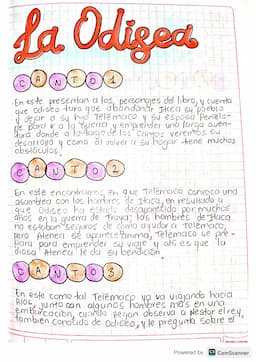 La Odisea
CANTO 1
En este presentan a los personajes del libro, y cuenta
que odiseo tuvo que abandonar Itaca su pueblo
y dejar a su hijo Telemaco y su esposa Penelo-
pe para ir a la guerra y emprender una larga aven-
tura donde a lo largo de los Cantos veremos su
desarroyo y como al volver a su hogar tiene muchos
obstaculos.
CANTO 2
En este encontramos, en que Telemaco convoca una
asamblea con los hombres de Itaca, en resultado a
que Odiseo ha estado desaparecido por muchos
años en la guerra de troya; los hombres de Itaca
no estaban seguros de como ayudar a Telemaco,
pero Atenea se aparece Telemaco se pre-
para para emprender su viaje y es que la
diosa Atenea le da su bendición.
CANTO 3
En este como tal Telemaco ya va viajando hacia
Pilos, junto con algunos hombres mas en una
embarcación, cuando llegan observa a Nestor el rey,
tambien conocido de Odiseo, y le pregunta sobre el
Powered by CamScanner